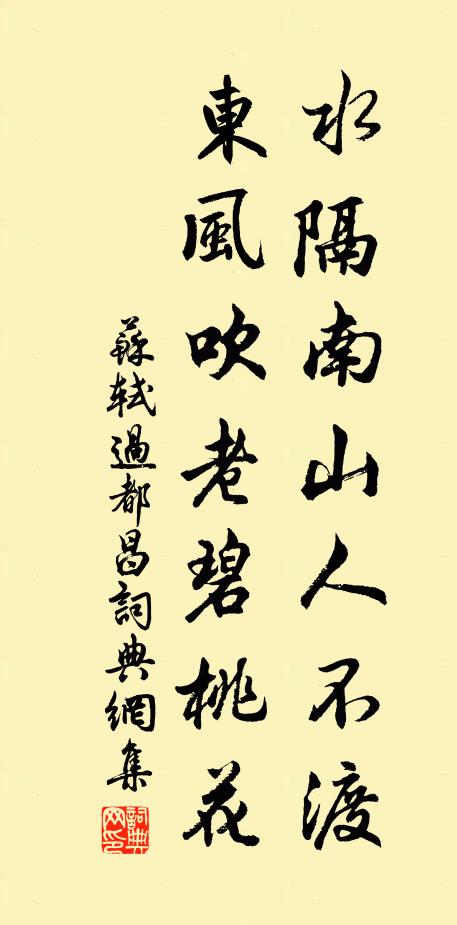 水隔南山人不渡
東風吹老碧桃花
蘇軾過都昌詞典網集
詞典
网印